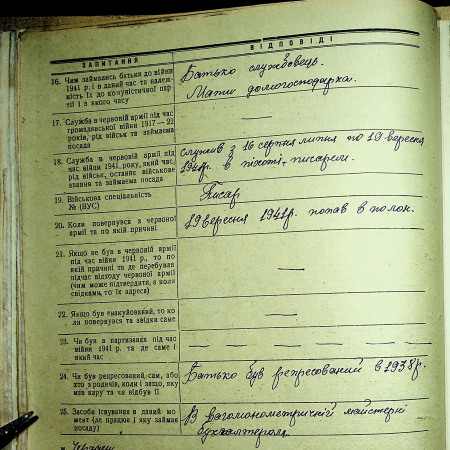 ЗАПИТАННЯ
ВІДПОВІДІ
16. Чим займались батьки до війни
1941 р. і в даний час та належ-
ність їх до комуністичної пар-
тії і з якого часу
Батько службовець.
Мати домогосподарка.
17. Служба в червоній армії під час
громадянської війни 1917—22
років, рід військ та займаєма
посада
—
18. Служба в червоній армії під
час війни 1941 року, який час,
рід військ, останнє військове
звання та займаєма посада
Служив з 16 серпня липня по 19 вересня
1941р. в піхоті, писарем.
19. Військова спеціальність
№ (ВУС)
Писар
20. Коли повернувся з червоної
армії та по якій причині
19 вересня 1941р. попав в полон.
21. Якщо не був в червоній армії
під час війни 1941 р., то по
якій причині та де перебував
підчас відходу червоної армії
(чим може підтвердити, а коли
свідками, то їх адреса)
—
22. Якщо був евакуйований, то ко-
ли повернувся та звідки саме
—
23. Чи був в партизанах під час
війни 1941 р. та де саме і
який час
— — — — — — — —
24. Чи був репресований, сам, або
хто з родичів, коли і защо, яку
мав кару та чи відбув її
Батько був репресований в 1938р.
25. Засоби існування в даний мо-
мент (де працює і яку займає
посаду)
В вагомонометричній майстерні
бухгалтером.